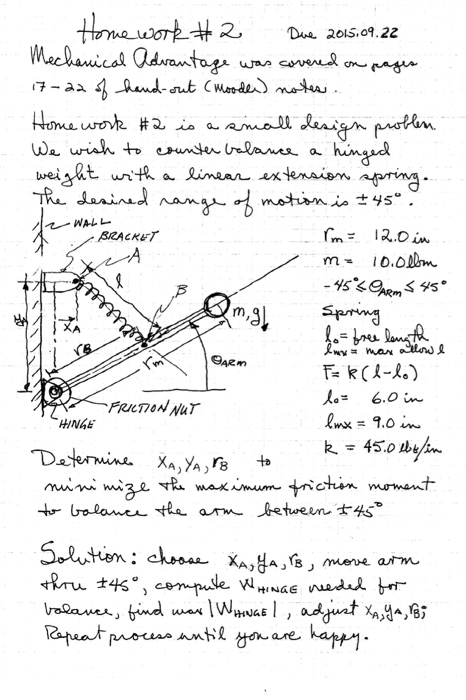 Homework # 2    Due 2015.09.22
Mechanical Advantage was covered on pages
17-22 of hand-out (Moodle) notes.
Homework #2 is a small design problem.
We wish to counter balance a hinged
weight with a linear extension spring.
The desired range of motion is ±45°.
WALL
BRACKET
A
l
B
m, g↓
yA
xA
rB
rm
θARM
FRICTION NUT
HINGE
rm = 12.0 in
m = 10.0 lbm
-45° ≤ θARM ≤ 45°
Spring
l0 = free length
lmx = max allow l
F = k (l - l0)
l0 = 6.0 in
lmx = 9.0 in
k = 45.0 lbf/in
Determine xA, yA, rB to
minimize the maximum friction moment
to balance the arm between ±45°
Solution: choose xA, yA, rB, move arm
thru ±45°, compute MHINGE needed for
balance, find max |MHINGE|, adjust xA, yA, rB;
Repeat process until you are happy.